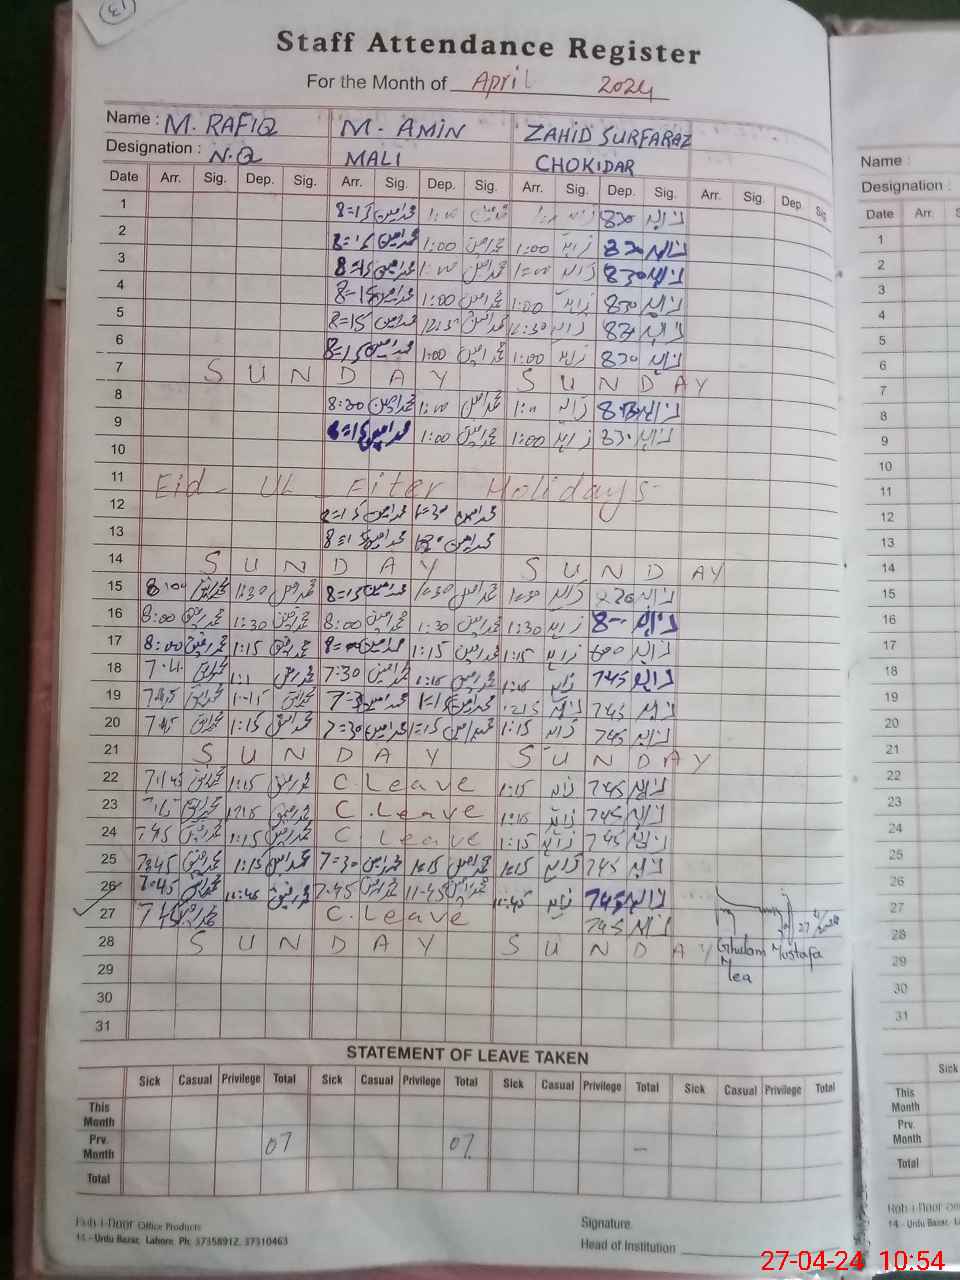 13
Staff Attendance Register
For the Month of April 2024
Name : M. RAFIQ M. AMIN ZAHID SURFARAZ
Designation : N.Q MALI CHOKIDAR
Date Arr. Sig. Dep. Sig. Arr. Sig. Dep. Sig. Arr. Sig. Dep. Sig. Arr. Sig. Dep. Sig
1 8=15 محمد امین 1:00 محمد امین زاہد 830 زاہد
2 8=15 محمد امین 1:00 محمد امین 1:00 زاہد 830 زاہد
3 8=15 محمد امین 1:00 محمد امین 1:00 زاہد 830 زاہد
4 8=15 محمد امین 1:00 محمد امین 1:00 زاہد 830 زاہد
5 8=15 محمد امین 12:30 محمد امین 12:30 زاہد 830 زاہد
6 8=15 محمد امین 1:00 محمد امین 1:00 زاہد 830 زاہد
7 S U N D A Y S U N D A Y
8 8:30 محمد امین 1:00 محمد امین 1:00 زاہد 830 زاہد
9 8=15 محمد امین 1:00 محمد امین 1:00 زاہد 830 زاہد
10
11 Eid - UL - Fiter Holidays-
12 8=15 محمد امین 1=30 محمد امین
13 8=15 محمد امین محمد امین
14 S U N D A Y S U N D A Y
15 8:00 محمد رفیق 1:30 محمد رفیق 8=15 محمد امین 1=30 محمد امین 1=30 زاہد 830 زاہد
16 8:00 محمد رفیق 1:30 محمد رفیق 8:00 محمد امین 1:30 محمد امین 1:30 زاہد زاہد
17 8:00 محمد رفیق 1:15 محمد رفیق محمد امین 1:15 محمد امین 1:15 زاہد 800 زاہد
18 محمد رفیق محمد رفیق 7:30 محمد امین 1:15 محمد امین 1:15 زاہد 745 زاہد
19 7:45 محمد رفیق 1:15 محمد رفیق محمد امین 1=15 محمد امین زاہد 745 زاہد
20 7:45 محمد رفیق 1:15 محمد رفیق 7=30 محمد امین 1:15 محمد امین 1:15 زاہد 745 زاہد
21 S U N D A Y S U N D A Y
22 7:45 محمد رفیق 1:15 محمد رفیق C. Leave 1:15 زاہد 745 زاہد
23 محمد رفیق 1:15 محمد رفیق C. Leave 1:15 زاہد 745 زاہد
24 7:45 محمد رفیق 1:15 محمد رفیق C. Leave 1:15 زاہد 745 زاہد
25 7:45 محمد رفیق 1:15 محمد رفیق 7=30 محمد امین 1:15 محمد امین 1:15 زاہد 745 زاہد
26 7:45 محمد رفیق 11:45 محمد رفیق 7:45 محمد امین 11:45 محمد امین 11:45 زاہد 745 زاہد
27 محمد رفیق C. Leave 745 زاہد
28 S U N D A Y S U N D A Y
Ghulam Mustafa
Mea
29
30
31
STATEMENT OF LEAVE TAKEN
Sick Casual Privilege Total Sick Casual Privilege Total Sick Casual Privilege Total Sick Casual Privilege Total
This Month
Prv. Month 07 07 –
Total
Rub i-Noor Office Products
14 - Urdu Bazar, Lahore. Ph: 37358912, 37310463
Signature
Head of Institution
Name :
Designation :
Date Arr. S
1
2
3
4
5
6
7
8
9
10
11
12
13
14
15
16
17
18
19
20
21
22
23
24
25
26
27
28
29
30
31
Sick
This Month
Prv. Month
Total
14 - Urdu Bazar, La
27-04-24 10:54